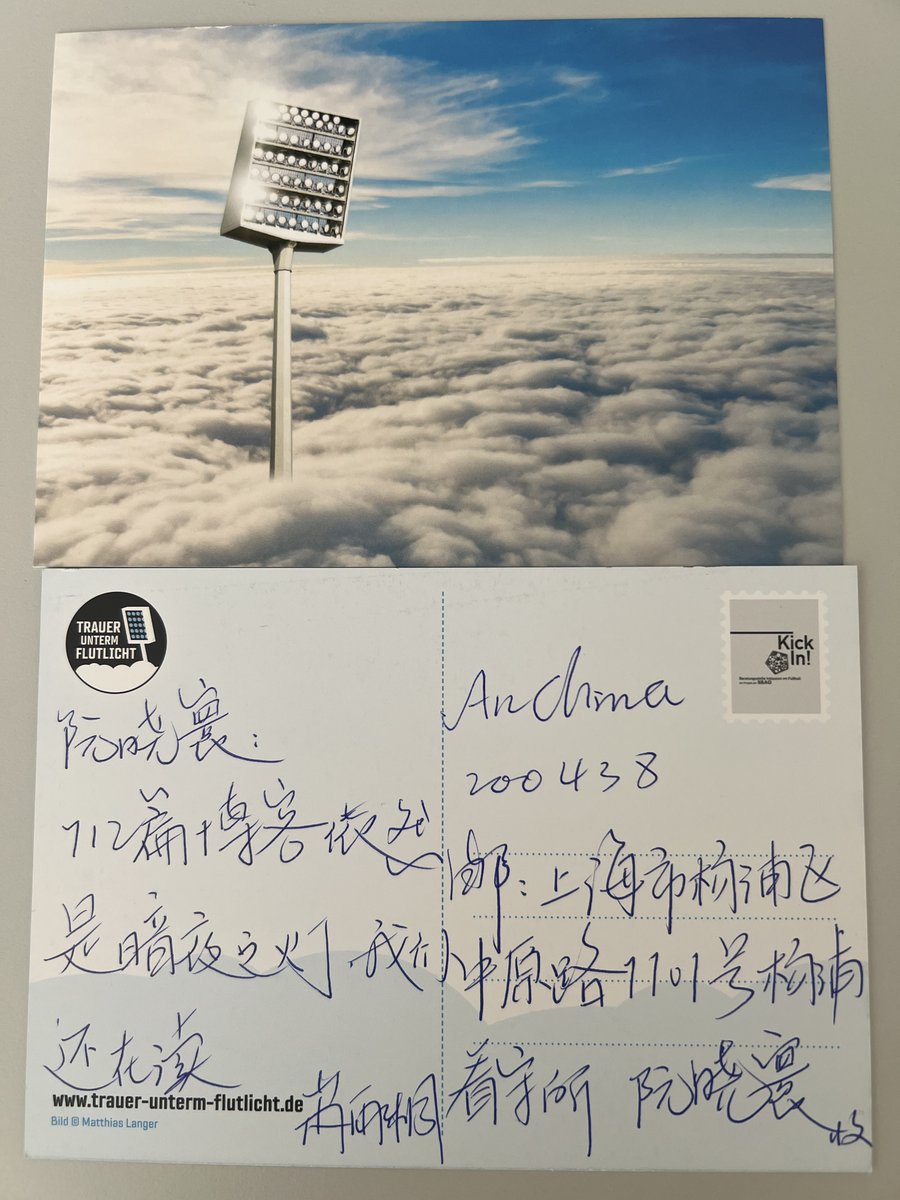 TRAUER
UNTERM
FLUTLICHT
阮晓寰:
712篇博客依然
是暗夜之灯,我们
还在读
www.trauer-unterm-flutlicht.de
Bild © Matthias Langer
Kick
In!
Beratungsstelle Inklusion im Fußball
An China
200438
邮:上海市杨浦区
中原路1101号杨浦
看守所 阮晓寰
收